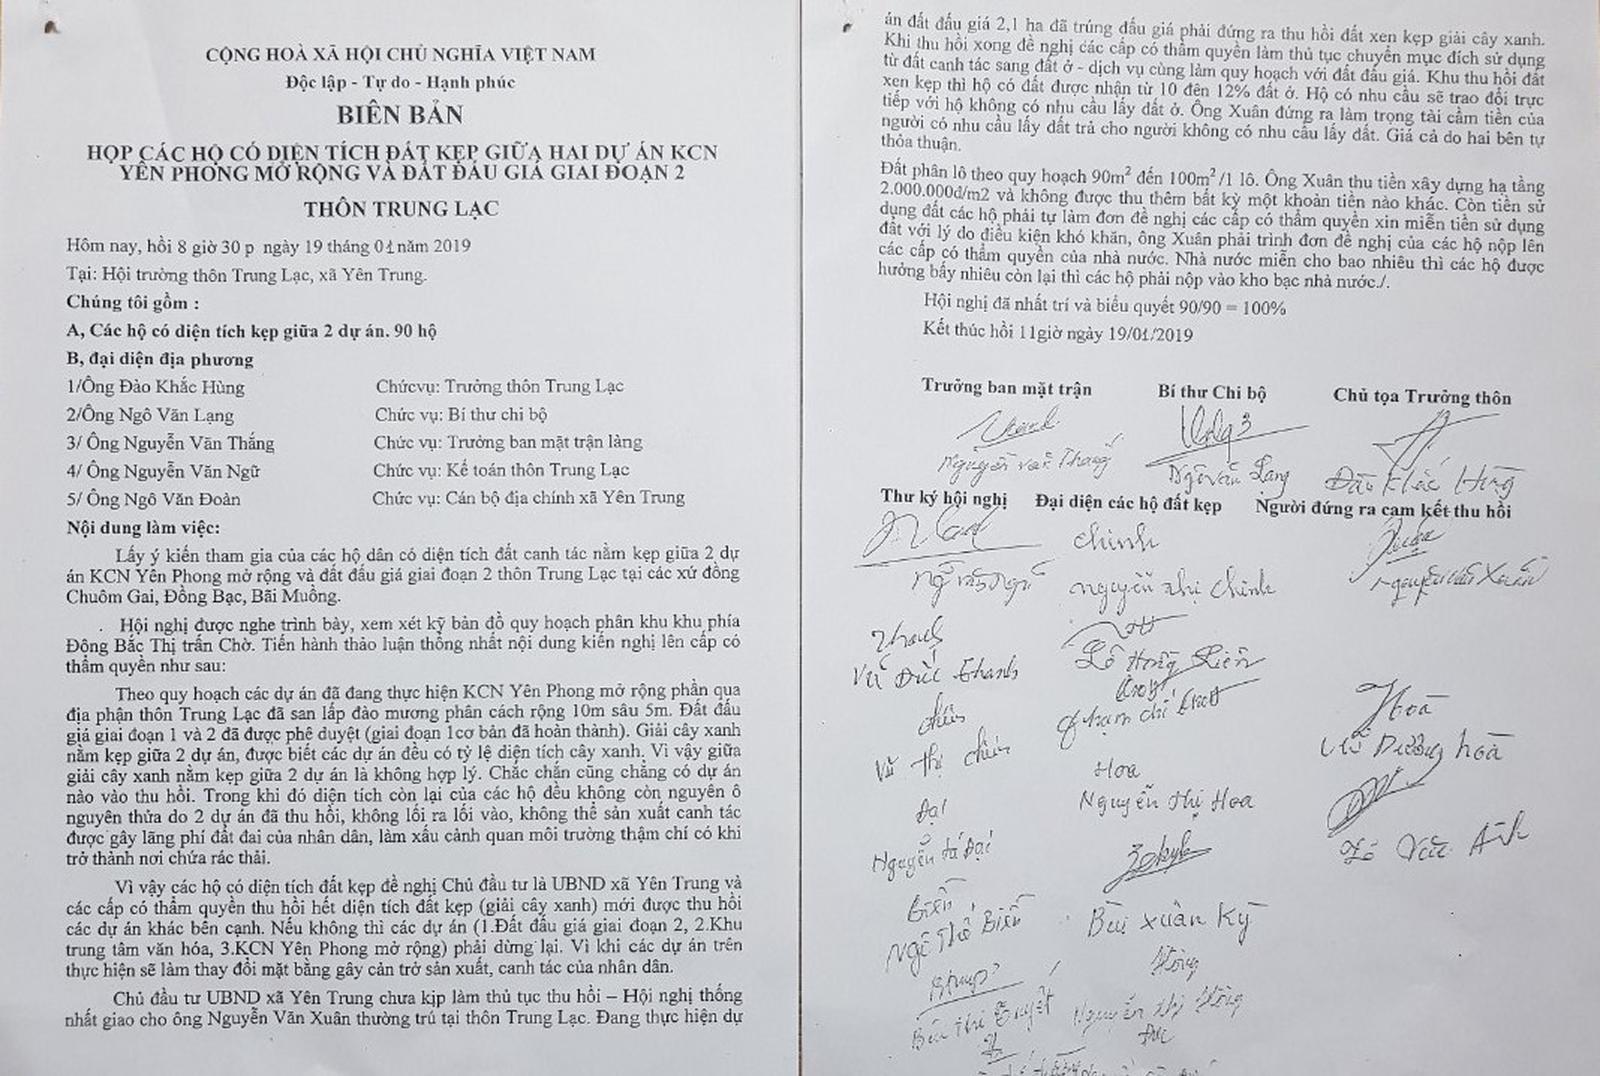 CỘNG HOÀ XÃ HỘI CHỦ NGHĨA VIỆT NAM
Độc lập - Tự do - Hạnh phúc
BIÊN BẢN
HỌP CÁC HỘ CÓ DIỆN TÍCH ĐẤT KẸP GIỮA HAI DỰ ÁN KCN
YÊN PHONG MỞ RỘNG VÀ ĐẤT ĐẤU GIÁ GIAI ĐOẠN 2
THÔN TRUNG LẠC
Hôm nay, hồi 8 giờ 30 p ngày 19 tháng 01 năm 2019
Tại: Hội trường thôn Trung Lạc, xã Yên Trung.
Chúng tôi gồm :
A, Các hộ có diện tích kẹp giữa 2 dự án. 90 hộ
B, đại diện địa phương
1/Ông Đào Khắc Hùng Chứcvụ: Trưởng thôn Trung Lạc
2/Ông Ngô Văn Lạng Chức vụ: Bí thư chi bộ
3/ Ông Nguyễn Văn Thắng Chức vụ: Trưởng ban mặt trận làng
4/ Ông Nguyễn Văn Ngữ Chức vụ: Kế toán thôn Trung Lạc
5/ Ông Ngô Văn Đoàn Chức vụ: Cán bộ địa chính xã Yên Trung
Nội dung làm việc:
Lấy ý kiến tham gia của các hộ dân có diện tích đất canh tác nằm kẹp giữa 2 dự
án KCN Yên Phong mở rộng và đất đấu giá giai đoạn 2 thôn Trung Lạc tại các xứ đồng
Chuôm Gai, Đồng Bạc, Bãi Muống.
. Hội nghị được nghe trình bày, xem xét kỹ bản đồ quy hoạch phân khu khu phía
Động Bắc Thị trấn Chờ. Tiến hành thảo luận thống nhất nội dung kiến nghị lên cấp có
thẩm quyền như sau:
Theo quy hoạch các dự án đã đang thực hiện KCN Yên Phong mở rộng phần qua
địa phận thôn Trung Lạc đã san lấp đào mương phân cách rộng 10m sâu 5m. Đất đấu
giá giai đoạn 1 và 2 đã được phê duyệt (giai đoạn 1cơ bản đã hoàn thành). Giải cây xanh
nằm kẹp giữa 2 dự án, được biết các dự án đều có tỷ lệ diện tích cây xanh. Vì vậy giữa
giải cây xanh nằm kẹp giữa 2 dự án là không hợp lý. Chắc chắn cũng chẳng có dự án
nào vào thu hồi. Trong khi đó diện tích còn lại của các hộ đều không còn nguyên ô
nguyên thửa do 2 dự án đã thu hồi, không lối ra lối vào, không thể sản xuất canh tác
được gây lãng phí đất đai của nhân dân, làm xấu cảnh quan môi trường thậm chí có khi
trở thành nơi chứa rác thải.
Vì vậy các hộ có diện tích đất kẹp đề nghị Chủ đầu tư là UBND xã Yên Trung và
các cấp có thẩm quyền thu hồi hết diện tích đất kẹp (giải cây xanh) mới được thu hồi
các dự án khác bên cạnh. Nếu không thì các dự án (1.Đất đấu giá giai đoạn 2, 2.Khu
trung tâm văn hóa, 3.KCN Yên Phong mở rộng) phải dừng lại. Vì khi các dự án trên
thực hiện sẽ làm thay đổi mặt bằng gây cản trở sản xuất, canh tác của nhân dân.
Chủ đầu tư UBND xã Yên Trung chưa kịp làm thủ tục thu hồi – Hội nghị thống
nhất giao cho ông Nguyễn Văn Xuân thường trú tại thôn Trung Lạc. Đang thực hiện dự
án đất đấu giá 2,1 ha đã trúng đấu giá phải đứng ra thu hồi đất xen kẹp giải cây xanh.
Khi thu hồi xong đề nghị các cấp có thẩm quyền làm thủ tục chuyển mục đích sử dụng
từ đất canh tác sang đất ở - dịch vụ cùng làm quy hoạch với đất đấu giá. Khu thu hồi đất
xen kẹp thì hộ có đất được nhận từ 10 đến 12% đất ở. Hộ có nhu cầu sẽ trao đổi trực
tiếp với hộ không có nhu cầu lấy đất ở. Ông Xuân đứng ra làm trọng tài cầm tiền của
người có nhu cầu lấy đất trả cho người không có nhu cầu lấy đất. Giá cả do hai bên tự
thỏa thuận.
Đất phân lô theo quy hoạch 90m² đến 100m²/1 lô. Ông Xuân thu tiền xây dựng hạ tầng
2.000.000đ/m2 và không được thu thêm bất kỳ một khoản tiền nào khác. Còn tiền sử
dụng đất các hộ phải tự làm đơn đề nghị các cấp có thẩm quyền xin miễn tiền sử dụng
đất với lý do điều kiện khó khăn, ông Xuân phải trình đơn đề nghị của các hộ nộp lên
các cấp có thẩm quyền của nhà nước. Nhà nước miễn cho bao nhiêu thì các hộ được
hưởng bấy nhiêu còn lại thì các hộ phải nộp vào kho bạc nhà nước./.
Hội nghị đã nhất trí và biểu quyết 90/90 = 100%
Kết thúc hồi 11giờ ngày 19/01/2019
Trưởng ban mặt trận Bí thư Chi bộ Chủ tọa Trưởng thôn
Nguyễn văn Thắng Ngô văn Lạng Đào Khắc Hùng
Thư ký hội nghị Đại diện các hộ đất kẹp Người đứng ra cam kết thu hồi
chinh
nguyễn thị chinh Nguyễn văn Xuân
Vũ Đức Thanh
Hoà
Vũ thị chín Vũ Dương hoà
Hoa
Đại Nguyễn Thị Hoa
Nguyễn tá Đại
Biển
Ngô Thế Biển Bùi Xuân Kỳ
Hồng
Bùi Thị Tuyết Nguyễn thị Hồng
Đức